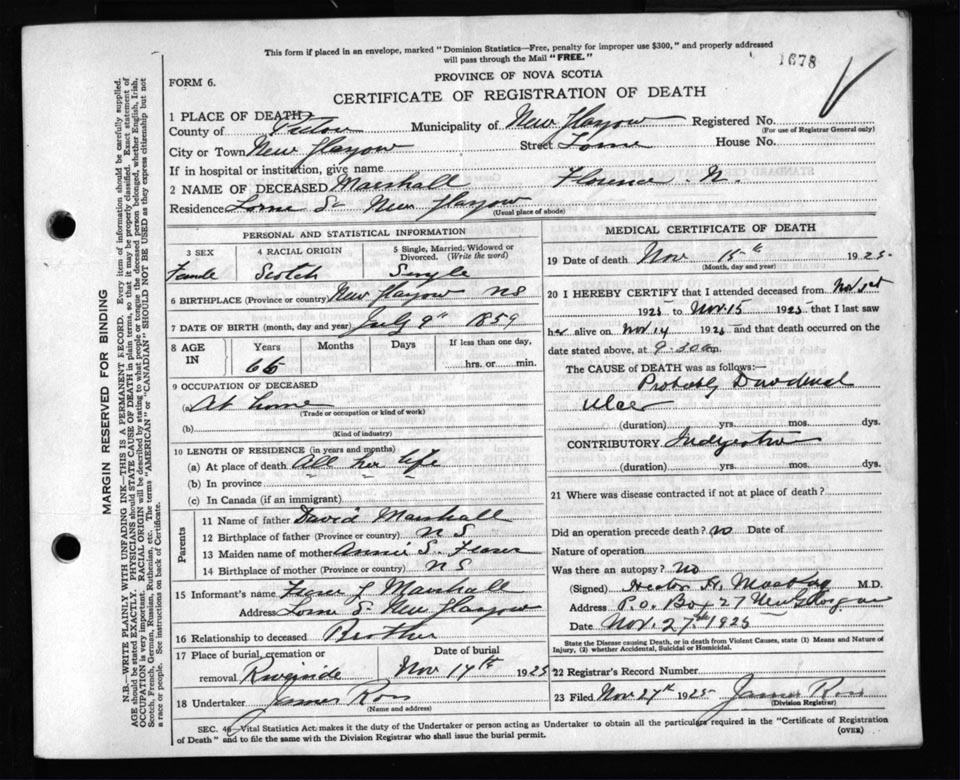 This form if placed in an envelope, marked "Dominion Statistics—Free, penalty for improper use $300," and properly addressed
will pass through the Mail "FREE."
1678
FORM 6.
PROVINCE OF NOVA SCOTIA
CERTIFICATE OF REGISTRATION OF DEATH
1 PLACE OF DEATH
County of Pictou Municipality of New Glasgow Registered No.
(For use of Registrar General only)
City or Town New Glasgow Street Lorne House No.
If in hospital or institution, give name
2 NAME OF DECEASED Marshall Florence N.
Residence Lorne St New Glasgow
(Usual place of abode)
PERSONAL AND STATISTICAL INFORMATION
3 SEX 4 RACIAL ORIGIN 5 Single, Married, Widowed or
Divorced. (Write the word)
Female Scotch Single
6 BIRTHPLACE (Province or country) New Glasgow NS
7 DATE OF BIRTH (month, day and year) July 9th 1859
8 AGE IN Years Months Days If less than one day,
66 hrs. or min.
9 OCCUPATION OF DECEASED
(a) At home
(Trade or occupation or kind of work)
(b)
(Kind of industry)
10 LENGTH OF RESIDENCE (in years and months)
(a) At place of death All her life
(b) In province " " "
(c) In Canada (if an immigrant)
Parents
11 Name of father David Marshall
12 Birthplace of father (Province or country) N S
13 Maiden name of mother Annie S. Fraser
14 Birthplace of mother (Province or country) N S
15 Informant's name L Marshall
Address Lorne St New Glasgow
16 Relationship to deceased Brother
17 Place of burial, cremation or Date of burial
removal Riverside Nov 17th 1925
18 Undertaker James Ross
(Name and address)
MEDICAL CERTIFICATE OF DEATH
19 Date of death Nov 15th 1925
(Month, day and year)
20 I HEREBY CERTIFY that I attended deceased from Nov 1st
1925 to Nov 15 1925 that I last saw
her alive on Nov 14 1925 and that death occurred on the
date stated above, at 9.30 am.
The CAUSE of DEATH was as follows:—
Probably Duodenal
Ulcer
(duration) yrs. mos. dys.
CONTRIBUTORY Indigestion
(duration) yrs. mos. dys.
21 Where was disease contracted if not at place of death?
Did an operation precede death? no Date of
Nature of operation
Was there an autopsy? No
(Signed) Hector H. MacKay M.D.
Address P.O. Box 27 New Glasgow
Date Nov. 27th 1925
State the Disease causing Death, or in death from Violent Causes, state (1) Means and Nature of
Injury, (2) whether Accidental, Suicidal or Homicidal.
22 Registrar's Record Number
23 Filed Nov 27th 1925 James Ross
(Division Registrar)
SEC. 46—Vital Statistics Act makes it the duty of the Undertaker or person acting as Undertaker to obtain all the particulars required in the "Certificate of Registration
of Death" and to file the same with the Division Registrar who shall issue the burial permit. (OVER)
MARGIN RESERVED FOR BINDING
N.B.—WRITE PLAINLY WITH UNFADING INK—THIS IS A PERMANENT RECORD. Every item of information should be carefully supplied.
AGE should be stated EXACTLY. PHYSICIANS should STATE CAUSE OF DEATH in plain terms, so that it may be properly classified. Exact statement of
OCCUPATION is very important. RACIAL ORIGIN will be described by stating to what people or tongue the deceased person belonged, whether English, Irish,
Scotch, French, German, Russian, Ruthenian, etc. The terms "AMERICAN" or "CANADIAN" SHOULD NOT BE USED as they express citizenship but not
a race or people. See instructions on back of Certificate.